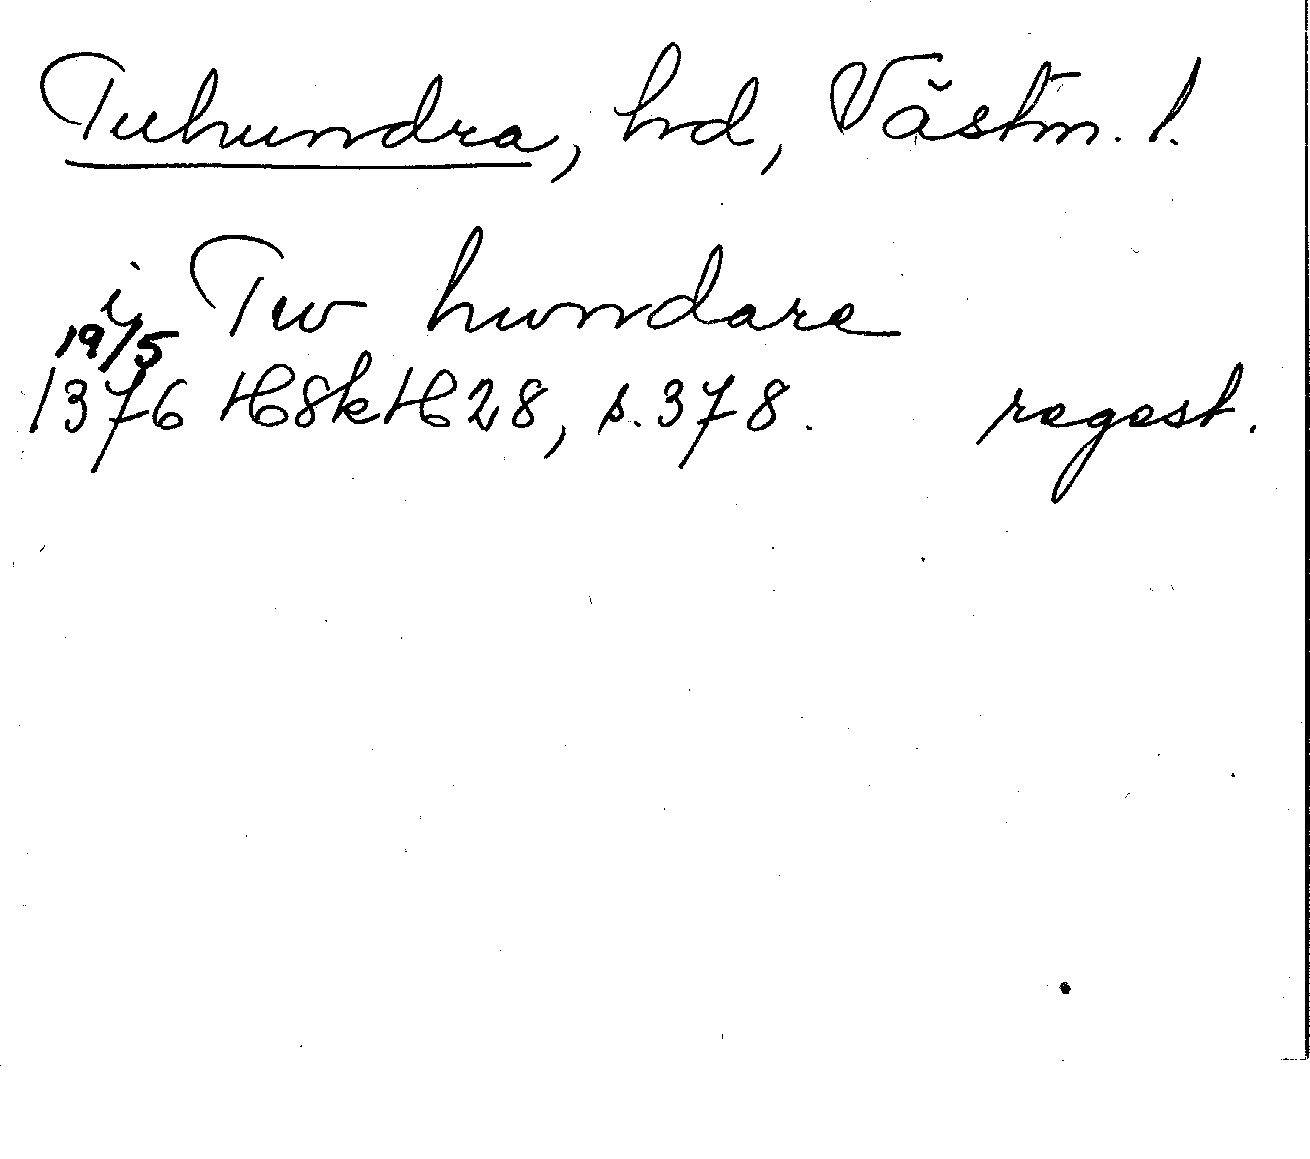 Tuhundra, hd, Västm. l.
i Tw hundare
19/5
1376 HSkH 28, s. 378. regest.